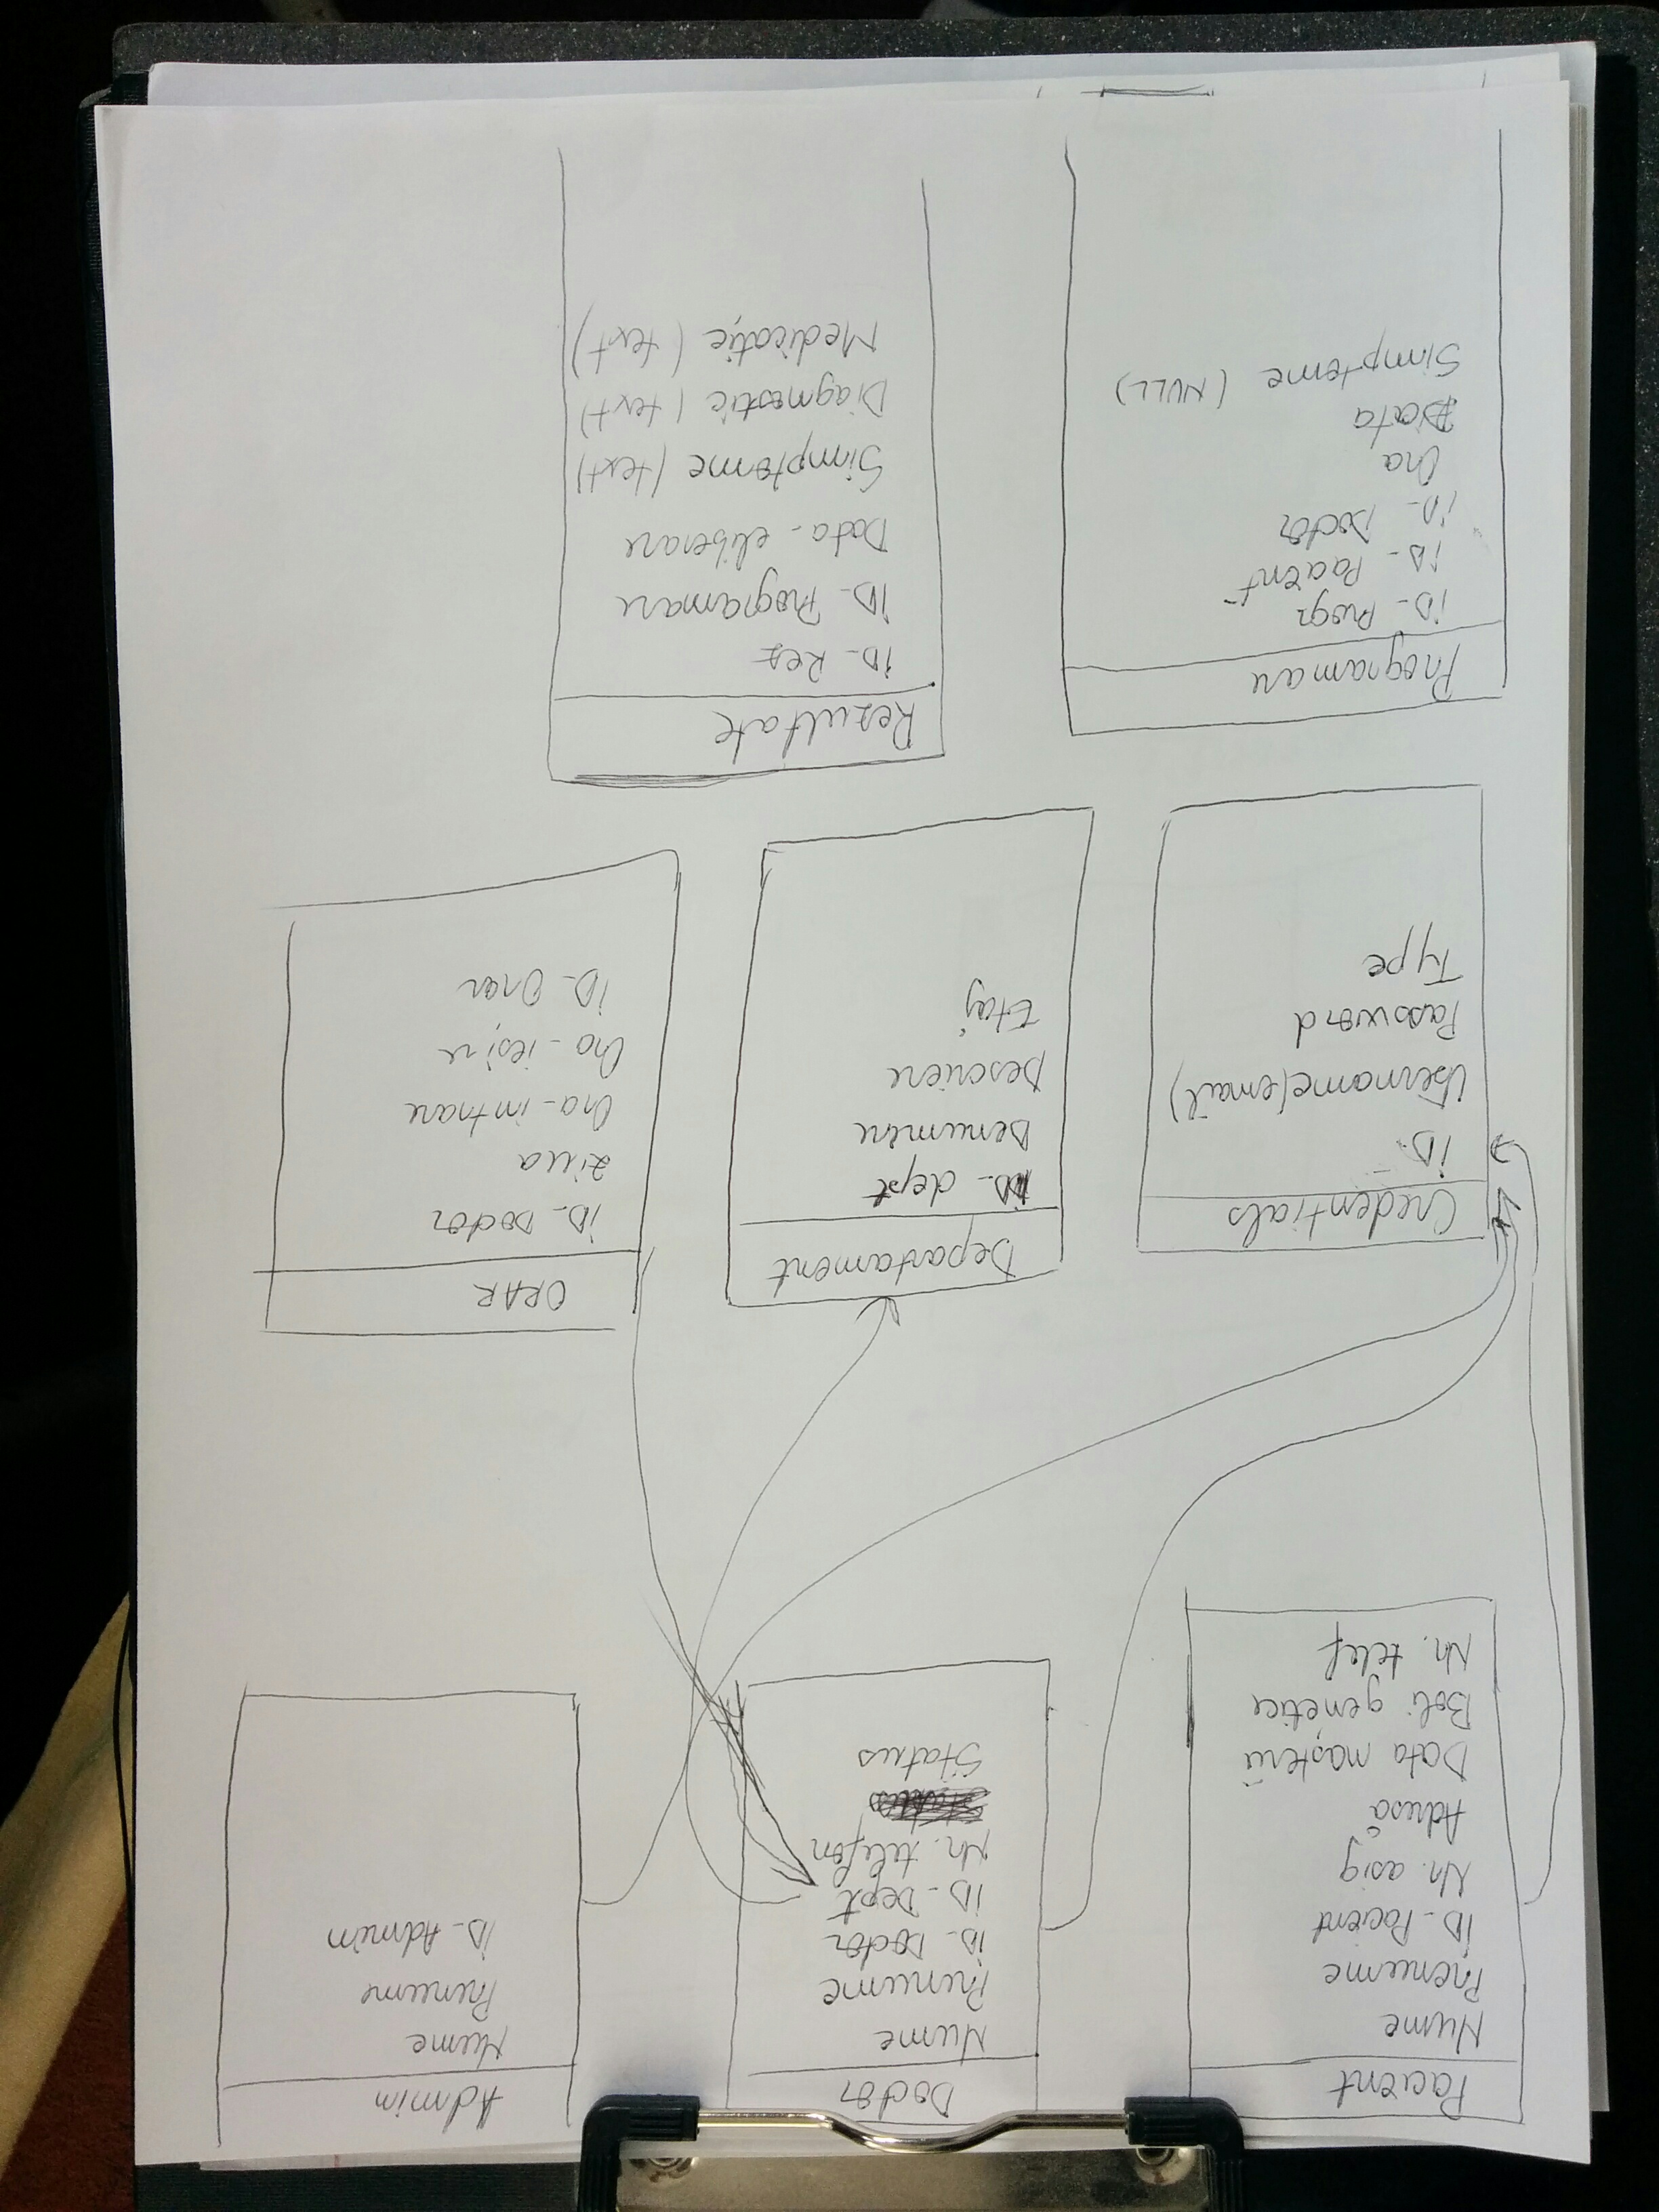 Pacient
Nume
Prenume
ID_Pacient
Nr. asig
Adresă
Data nașterii
Boli genetice
Nr. telef
Doctor
Nume
Prenume
ID_Doctor
ID_Dept
Nr. telefon
Status
Admin
Nume
Prenume
ID_Admin
Credentials
ID
Username(email)
Password
Type
Departament
ID_dept
Denumire
Descriere
Etaj
ORAR
ID_Doctor
Ziua
Ora_intrare
Ora_ieșire
ID_Orar
Programare
ID_Progr
ID_Pacient
ID_Doctor
Ora
Data
Simptome (NULL)
Rezultate
ID_Rez
ID_Programare
Data_eliberare
Simptome (text)
Diagnostic (text)
Medicație (text)